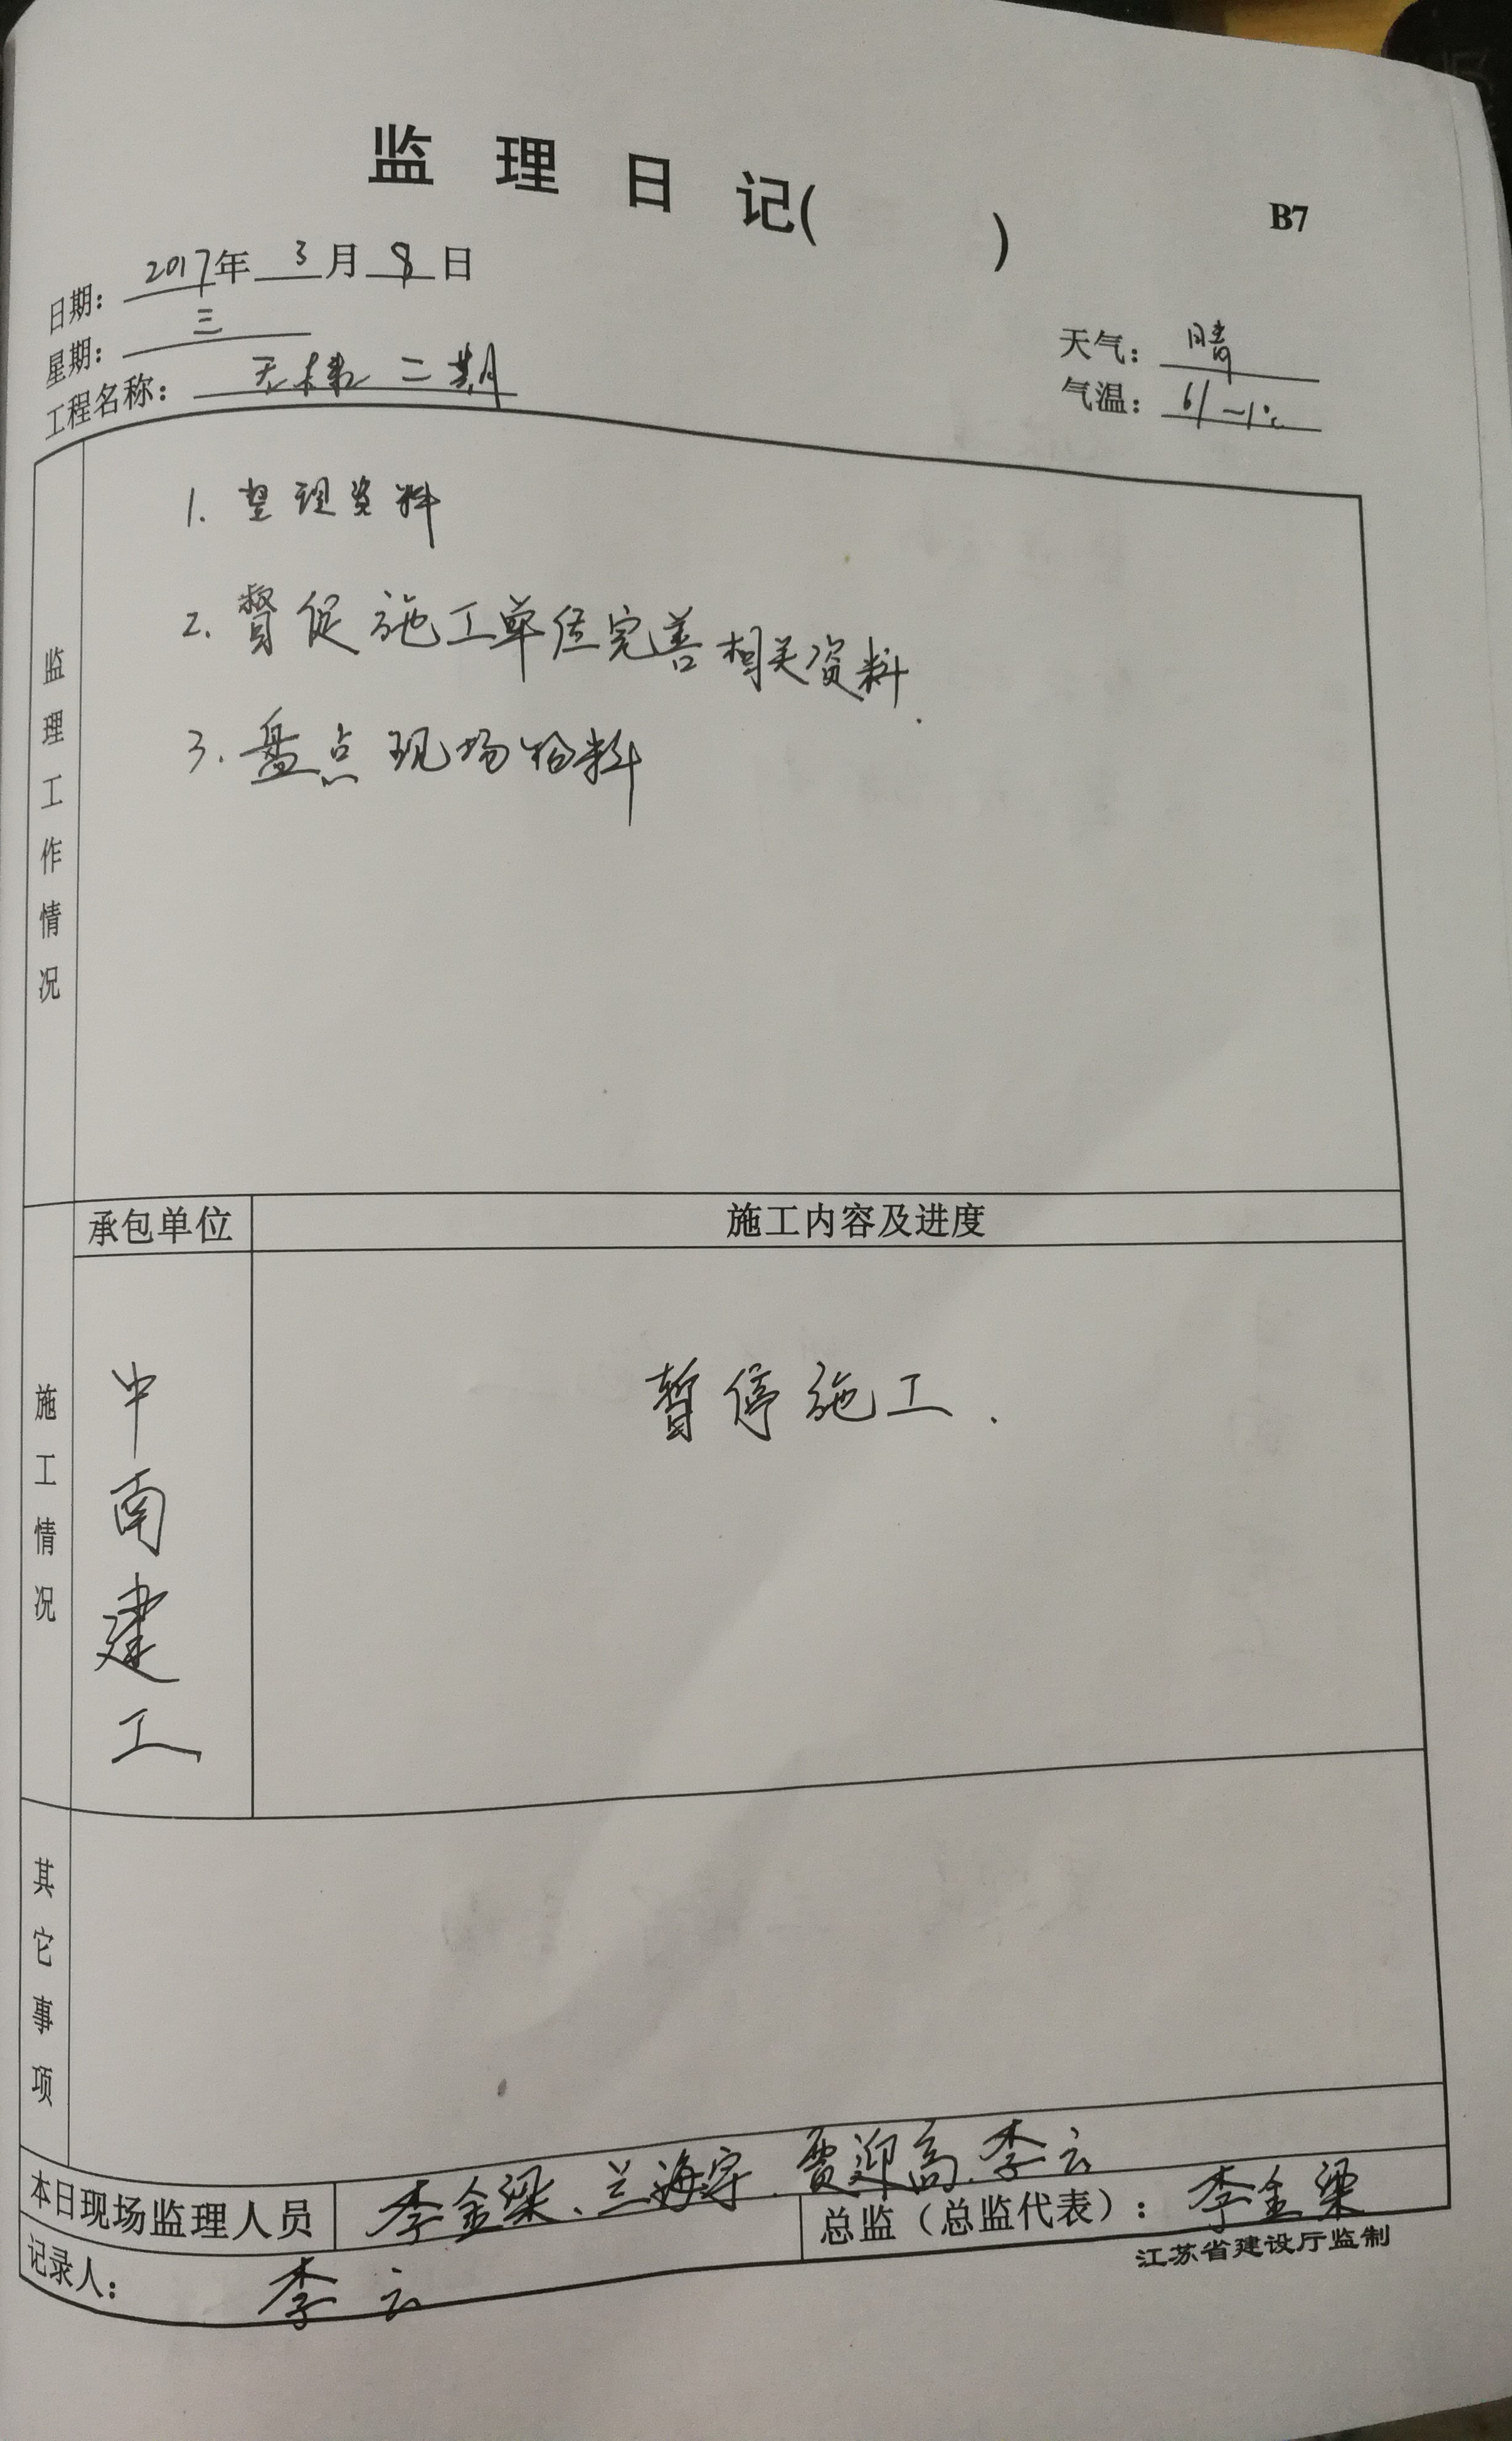 监 理 日 记( )
B7
日期: 2017年 3 月 8 日
星期: 三
工程名称: 无棣二期
天气: 晴
气温: 6/-1℃
监理工作情况
1. 整理资料
2. 督促施工单位完善相关资料.
3. 盘点现场物料
施工情况
承包单位 施工内容及进度
中南建工 暂停施工.
其它事项
本日现场监理人员 李金梁、兰海宇.贾迎高.李云
记录人: 李云 总监（总监代表）: 李金梁
江苏省建设厅监制